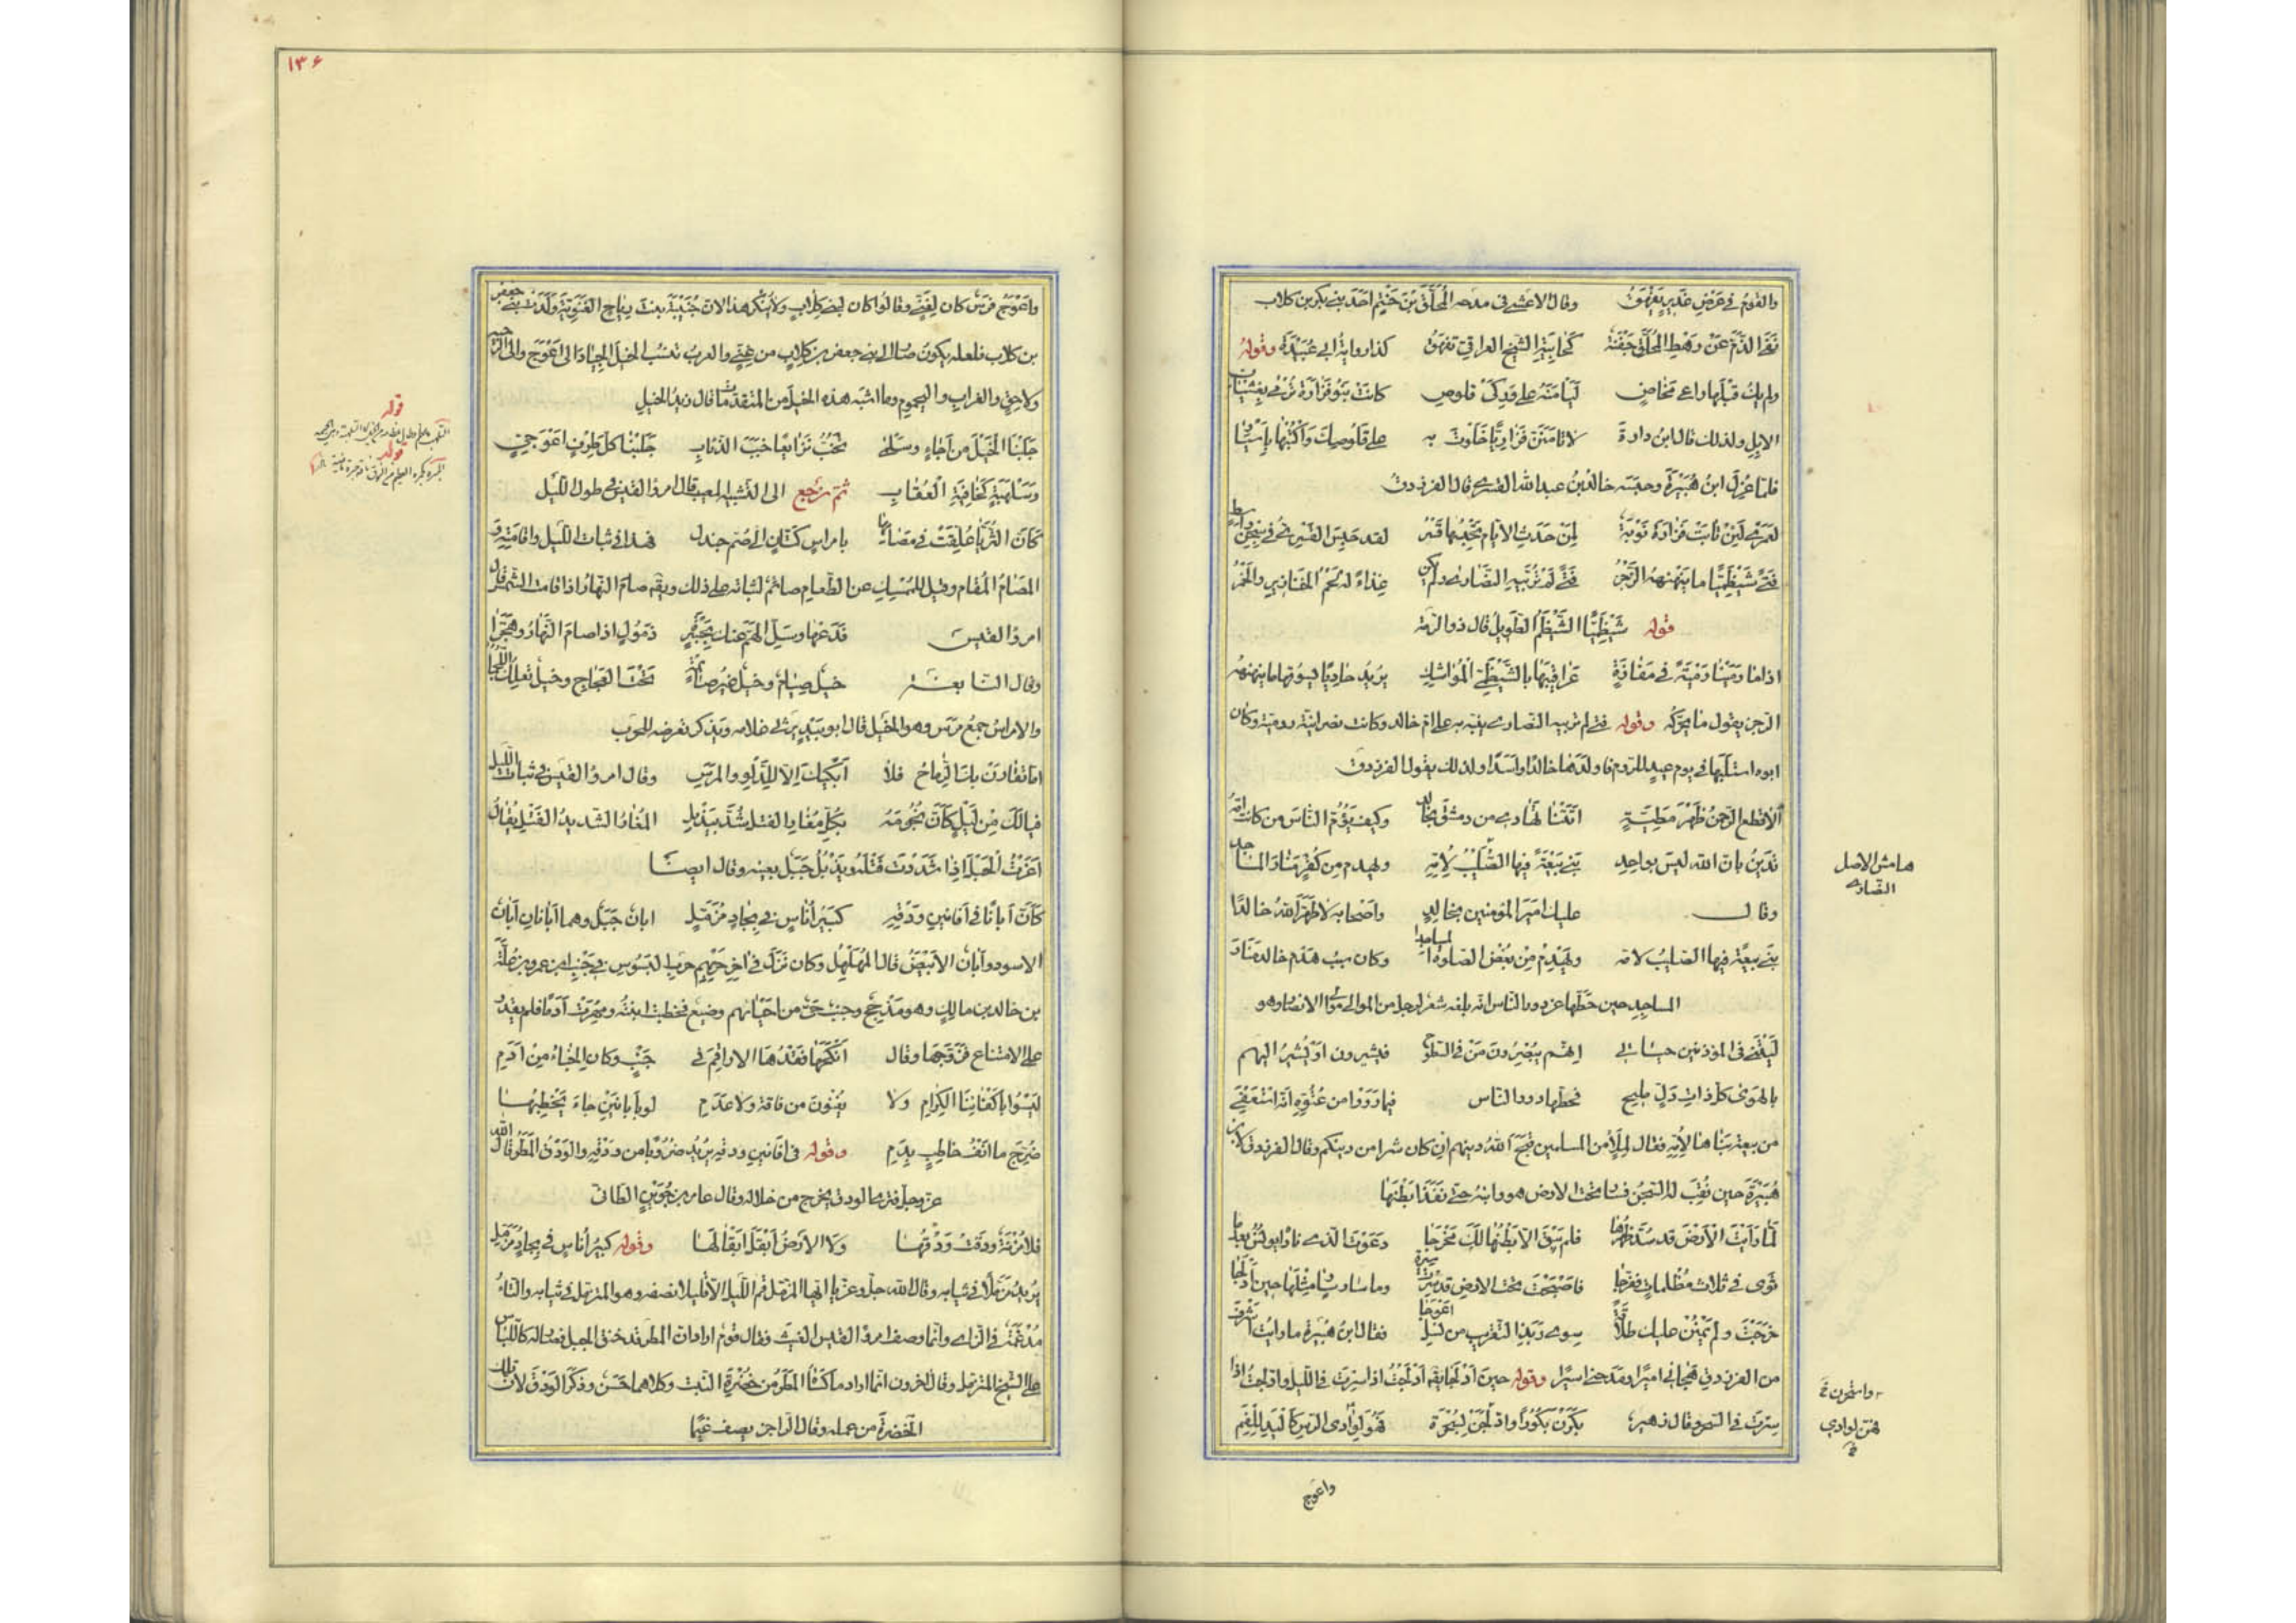 والقوم في عرض غدير يفهق وقال الاعشى في مدحه المحلق بن حنتم احد بني بكر بن كلاب
نفى الذم عن رهط المحلق جفنة كجابية الشيخ العراقي تفهق كذا رواية ابي عبيدة وقوله
ولم يك قبلها راعي مخاض ليأمنه على وركى قلوص كانت بنو فزارة ترمى بغشيان
الابل ولذلك قال ابن دارة لا تأمنن فزاريا خلوت به على قلوصك واكتبها بأسيار
فلما عزل ابن هبيرة وحبسه خالد بن عبد الله القسري قال الفرزدق
لعمري لئن نابت فزارة نوبة لمن حدث الايام تحبسها قسر لقد حبس القسري في سجن واسط
فتى شيظميا ما ينهنهه الزجر فتى لم تربيه النصارى ولم يكن غذاء له لحم الخنازير والخمر
قوله شيظميا الشيظم الطويل قال ذو الرمة
اذا ما رمينا رمية في مفازة عراقيبها بالشيظمي المواشك يريد حاديا يسوقها ما ينهنهه
الزجر يقول ما يحركه وقوله فتى لم تربيه النصارى ينبه به على ام خالد وكانت نصرانية رومية وكان
ابوه استلبها في يوم عيد للروم فاولدها خالدا واسدا ولذلك يقول الفرزدق
ألا قطع الرحمن ظهر مطية اتتنا تهادى من دمشق بخالد وكيف يؤم الناس من كانت امه
تدين بان الله ليس بواحد بنى بيعة فيها الصليب لامه ويهدم من كفر منار المساجد
وقال عليك امير المؤمنين بخالد واصحابه لا طهر الله خالدا
بنى بيعة فيها الصليب لامه ويهدم من بغض الصلوة المساجدا وكان سبب هدم خالد منار
المساجد حين حطها عن دور الناس انه بلغه شعر لرجل من الموالى موالى الانصار وهو
ليتني في المؤذنين حياتي انهم يبصرون من في السطوح فيشيرون او تشير اليهم
بالهوى كل ذات دل مليح فحطها دور الناس فيما رووا من عتوه انه استعفى
من بيعة بناها لامه فقال لملأ من المسلمين قبح الله دينهم ان كان شرا من دينكم وقال الفرزدق لابن
هبيرة حين نقب له السجن فسار تحت الارض هو وابنه حتى نفذا بطنها
لما رأيت الارض قد سد ظهرها فلم يبق الا بطنها لك مخرجا دعوت الذي ناداه يونس بعدما
ثوى في ثلاث مظلمات ففرجا فاصبحت تحت الارض قد سرت سيرة وما سار سار مثلها حين ادلجا
خرجت ولم يمنن عليك طلاقة سوى ربذ التقريب من نسل اعوجا فقال ابن هبيرة ما رأيت اشرف
من الفرزدق هجاني اميرا ومدحني اسيرا وقوله حين ادلجا يقه ادلجت اذا سرت في الليل وادلجت اذا
سرت في السحر وقال زهير بكرن بكورا وادلجن لسحرة فهن لوادى الرس كاليد للفم
هامش الاصل
النصارى
فهن لوادي
واعوج
١٣٤
واعوج فرس كان لغني وقالوا كان لبني كلاب ولا ينكر هذا لان حبيبة بنت رياح الغنوية ولدت بني جعفر
بن كلاب فلعله يكون صار الى بني جعفر بن كلاب من غني والعرب تنسب الخيل الجياد الى اعوج والى الوجيه
ولاحق والغراب واليحموم وما اشبه هذه الخيل من المتقدمات قال زيد الخيل
جلبنا الخيل من اجاء وسلمى تخب نزائعا خبب الذئاب جلبنا كل طرف اعوجي
وسلهبة كخافية العقاب ثم نرجع الى التشبيه المصيب قال امرؤ القيس في طول الليل
كأن الثريا علقت في مصامها بامراس كتان الى صم جندل فهذا في ثبات الليل واقامته و
المصام المقام وقيل للممسك عن الطعام صائم لثباته على ذلك ويقه صام النهار اذا قامت الشمس قال
امرؤ القيس فدعها وسل الهم عنك بجسرة ذمول اذا صام النهار وهجرا
وقال النابغة خيل صيام وخيل غير صائمة تحت العجاج وخيل تعلك اللجما
والامراس جمع مرس وهو الحبل قال ابو زبيد يرثي غلامه ويذكر تعرضه للحرب
اما تقارن بك الرماح فلا ابكيك الا للدلو والمرس وقال امرؤ القيس في ثبات الليل
فيالك من ليل كأن نجومه بكل مغار الفتل شدت بيذبل المغار الشديد الفتل يقال
اغرت الحبل اذا شددت فتله ويذبل جبل بعينه وقال ايضا
كأن ابانا في افانين ودقه كبير اناس في بجاد مزمل ابان جبل وهما ابانان ابان
الاسود وابان الابيض قال المهلهل وكان نزل في آخر حربهم حرب البسوس في جنب بن عمرو بن علة
بن خالد بن مالك وهو مذحج وجنب حي من احيائهم وضيع فخطبت ابنته ومهرت ادما فلم يقدر
على الامتناع فزوجها وقال انكحها فقدها الاراقم في جنب وكان الخباء من ادم
ليسوا باكفائنا الكرام ولا يغنون من فاقة ولا عدم لو بابانين جاء يخطبها
ضرج ما انف خاطب بدم وقوله في افانين ودقه يريد ضروبا من ودقه والودق المطر قال الله
عز وجل فترى الودق يخرج من خلاله وقال عامر بن جوين الطائي
فلا مزنة ودقت ودقها ولا الارض ابقل ابقالها وقوله كبير اناس في بجاد مزمل
يريد مزملا في ثيابه وقال الله جل وعز يا ايها المزمل قم الليل الا قليلا نصفه وهو المتزمل في ثيابه والتاء
مدغمة في الزاى وانما وصف امرؤ القيس الغيث فقال قوم اراد ان المطر قد خنق الجبل فصار له كاللباس
على الشيخ المتزمل وقال آخرون انما اراد ما كساه المطر من خضرة النبت وكلاهما حسن وذكر الودق لان تلك
الخضرة من عمله وقال الراجز يصف غيما
قوله
قوله